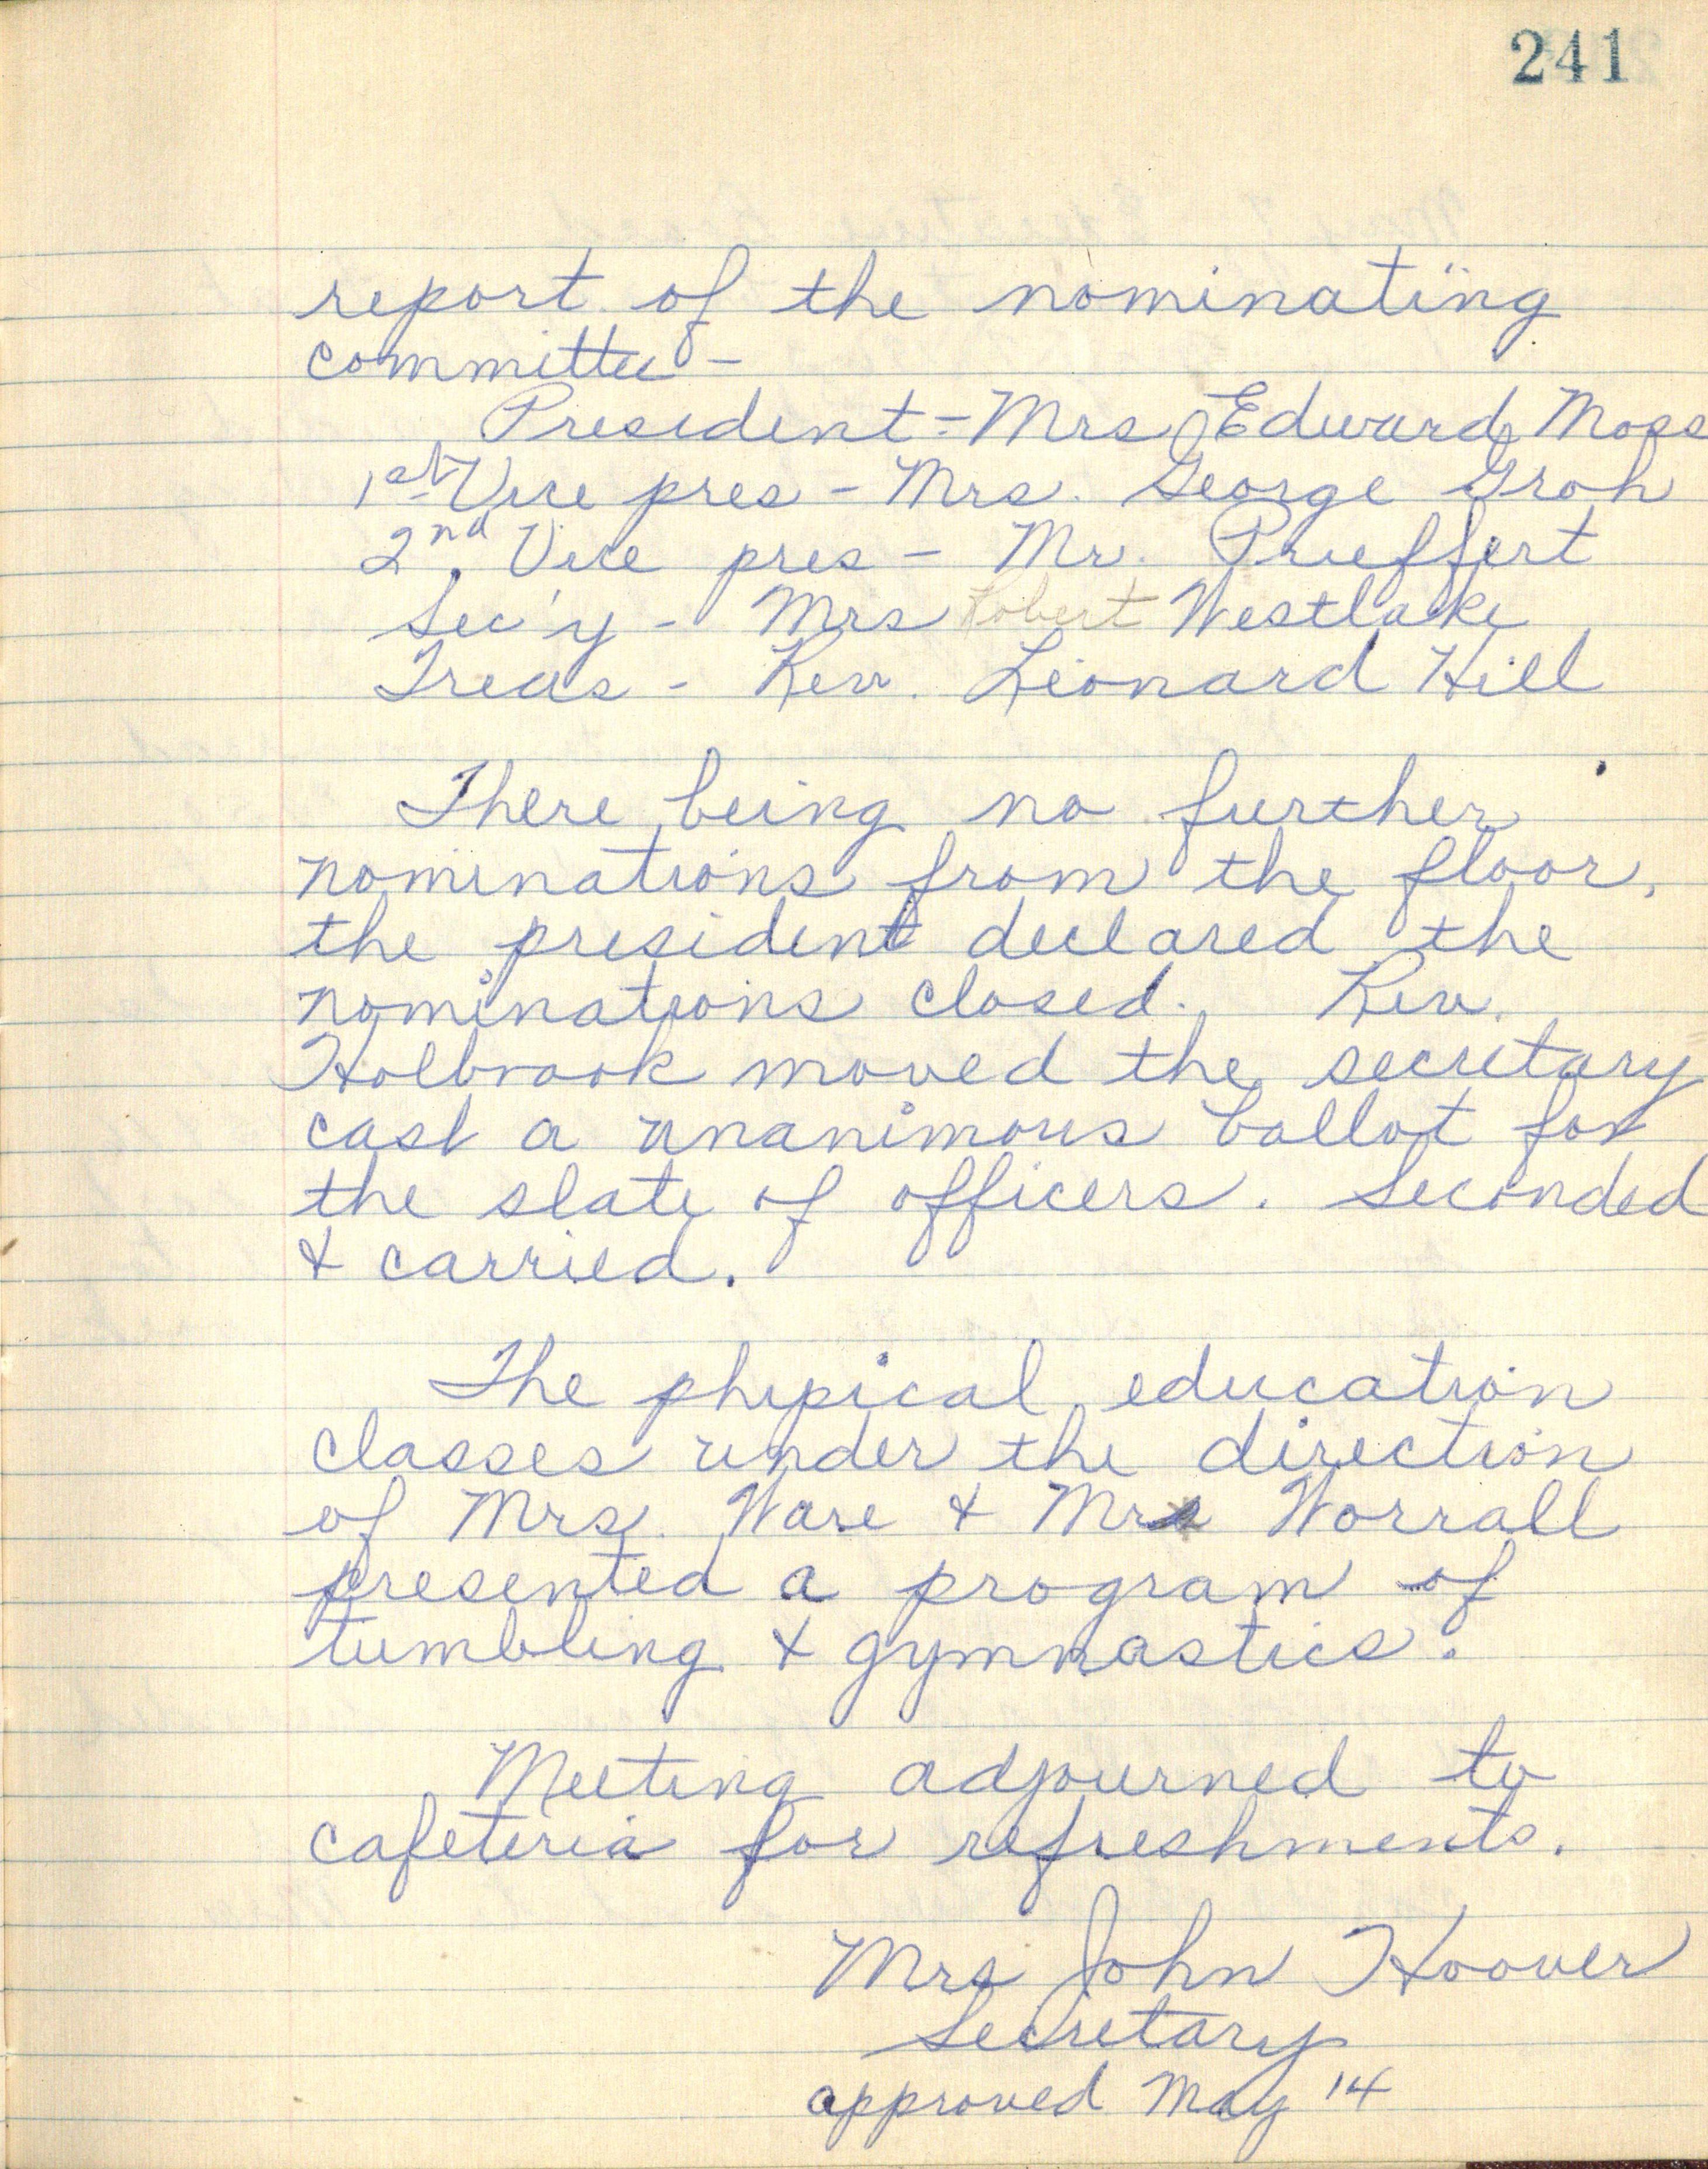 241
report of the nominating
committee -
President - Mrs Edward Moss
1st Vice pres - Mrs. George Groh
2nd. Vice pres - Mr. Prueffert
Sec'y - Mrs Robert Westlake
Treas - Rev. Leonard Hill
There being no further
nominations from the floor,
the president declared the
nominations closed. Rev.
Holbrook moved the secretary
cast a unanimous ballot for
the slate of officers. Seconded
& carried.
The phipical education
classes under the direction
of Mrs. Ware & Mrs Worrall
presented a program of
tumbling & gymnastics.
Meeting adjourned to
cafeteria for refreshments.
Mrs John Hoover
Secretary
approved May 14